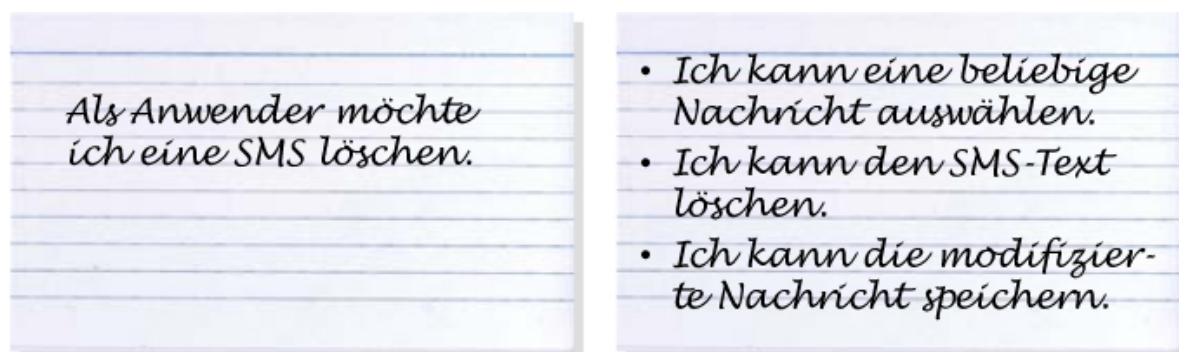 Als Anwender möchte
ich eine SMS löschen.
• Ich kann eine beliebige
Nachricht auswählen.
• Ich kann den SMS-Text
löschen.
• Ich kann die modifizier-
te Nachricht speichern.